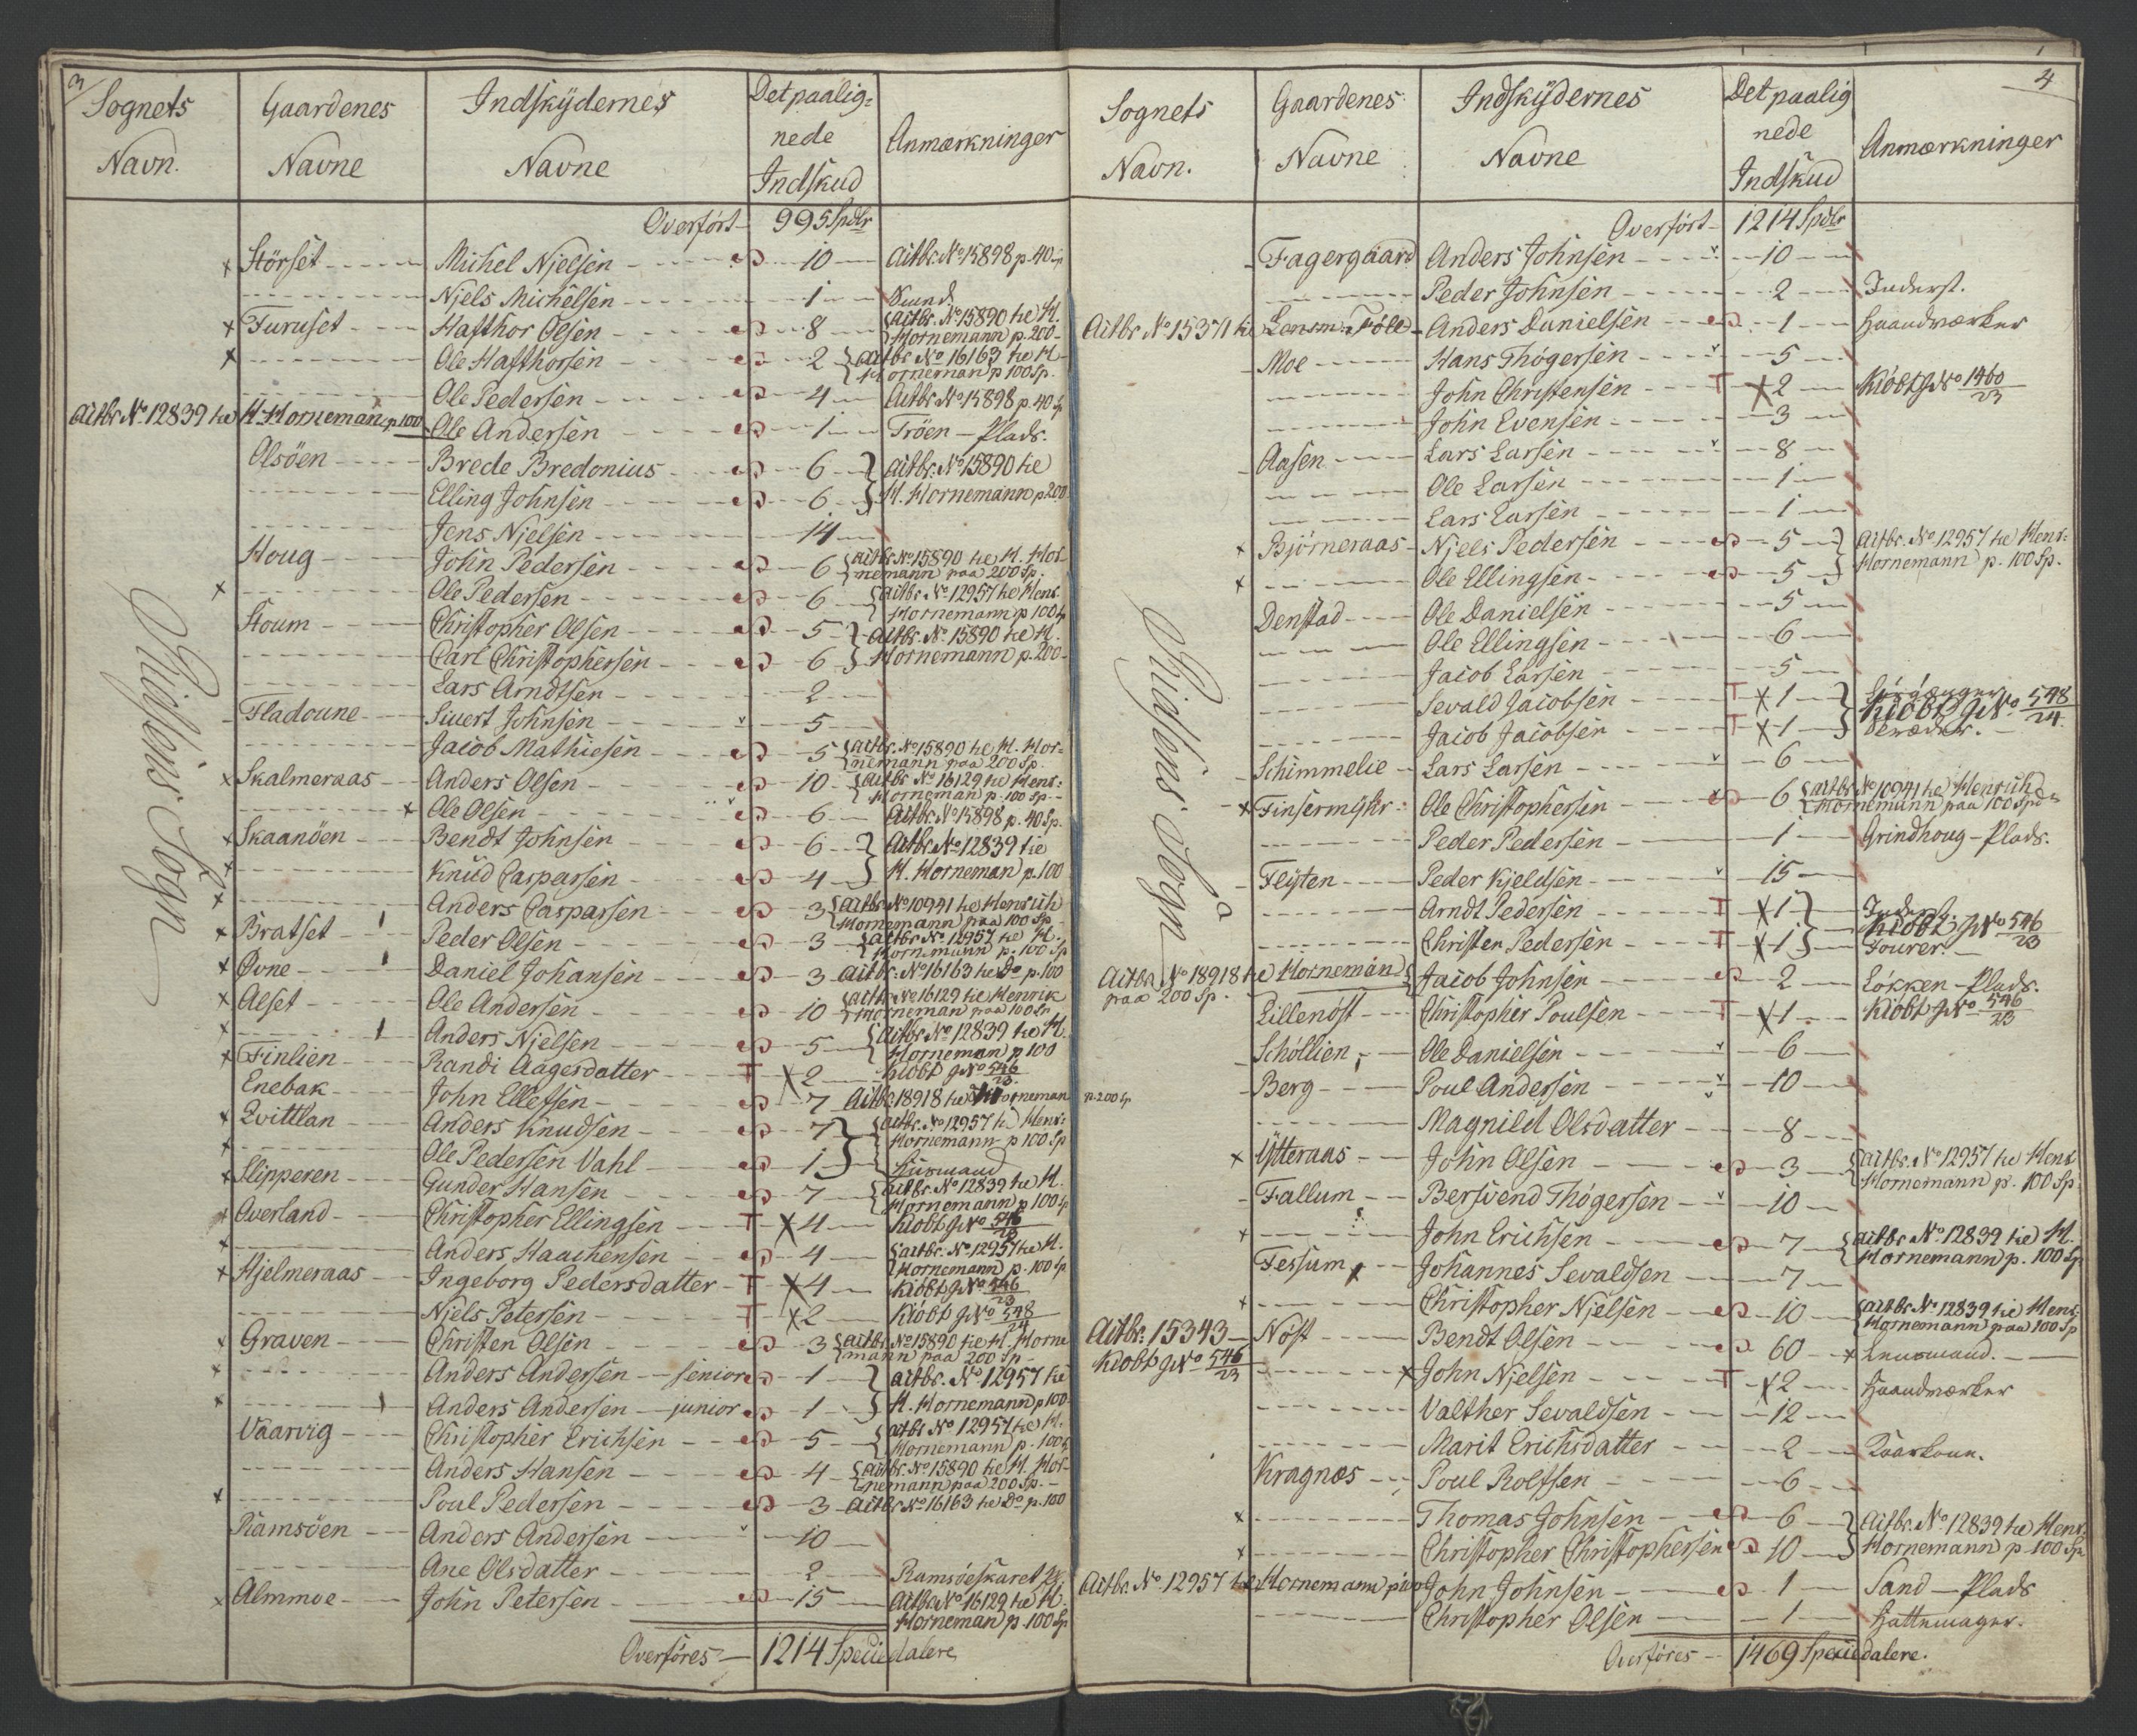 3
Sognets Navn.
Gaardenes Navne
Indskÿdernes Navne
Det paalig= nede Indskud
Anmærkninger
Overført — 995 Spdlr
Störset Michel Njelsen 10 Actbr. No 15898 p. 40
Njels Michelsen 1
Furuset Hafthor Olsen 8 Actbr. No 15890 ke H. Hornemann p. 200
Ole Hafthorsen 2 actbr No 16163 ke H. Horneman p 100 Sp.
Ole Pedersen 4 Actbr No 15898 p. 40 Sp
Actbr No 12839 ke H. Horneman p 100 Ole Andersen 1 Tröen — Plads.
Olsöen Brede Bredonius 6 Actbr. No 15890 ke
Elling Johnsen 6 H. Hornemann p 200
Jens Njelsen 14
Houg John Pedersen 6 actbr No 15890 ke H. Hornemann paa 200 Sp.
Ole Pedersen 6 actbr. No 12957 ke Henr. Hornemann p 100 Sp
Stoum Christopher Olsen 5 Actbr. No 15890 ke H.
Carl Christophersen 6 Hornemann p. 200
Lars Arndtsen 2
Fladoune Siuert Johnsen 5
Jacob Mathiesen 5 actbr. No 15890 ke H. Hornemann paa 200 Sp.
Skalmeraas Anders Olsen 10 actbr No 16129 ke Henr: Horneman p. 100 Sp.
Ole Olsen 6 Actbr. No 15898 p. 40 Sp.
Skaanöen Bendt Johnsen 6 Actbr. No 12839 ke
Knud Caspersen 4 H. Horneman p. 100
Anders Caspersen 3 actbr No 10941 ke Henrich Hornemann paa 100 Sp
Bratset Peder Olsen 3 actbr No 12957 ke H. Hornemann p. 100 Sp
Øvne Daniel Johansen 3 actbr. No 16163 ke Do p. 100
Alset Ole Andersen 10 actbr No 16129 ke Henrik Horneman paa 100 Sp
Anders Njelsen 5 Actbr. No 12839 ke H. Horneman p 100
Finlien Randi Aagesdatter T 2 Kiöbt g No 546/23
Enebak John Ellefsen 7 Actbr 18918 ke Horneman p. 200 Sp
Qvittlan Anders Knudsen 7 actbr. No 12957 ke Henr: Hornemann p 100 Sp
Ole Pedersen Vahl 1 Huusmand
Slipperen Gunder Hansen 7 actbr. No 12839 ke H. Hornemann p 100 Sp
Overland Christopher Ellingsen T 4 Kiöbt g No 546/23
Anders Haachensen 4 actbr. No 12957 ke H. Hornemann p. 100 Sp
Hjelmeraas Ingeborg Pedersdatter T 4 Kiöbt g No 546/23
Njels Petersen T 2 Kiöbt g No 548/24
Graven Christen Olsen 3 actbr No 15890 ke H. Hornemann paa 200 Sp
Anders Andersen — senior 1 actbr. No 12957 ke
Anders Andersen — junior 1 H. Hornemann p 100
Vaarvig Christopher Erichsen 5 actbr No 12957 ke H. Hornemann p. 100 Sp
Anders Hansen 4 actbr. No 15890 ke H. Hornemann paa 200 Sp.
Poul Pedersen 3 Actbr No 16163 ke Do p. 100
Ramsöen Anders Andersen 10
Ane Olsdatter 2 Ramsöeskaret
Almmoe John Petersen 15 Actbr No 16129 ke H. Horneman p. 100 Sp
Overføres — 1214 Speciedalere
Thisens Sogn
4
Sognets Navn.
Gaardenes Navne
Indskÿdernes Navne
Det paalig nede Indskud
Anmærkninger
Overført — 1214 Spdlr
Fagergaard Anders Johnsen 10
Peder Johnsen 2 Inderst.
Actbr No 15371 ke Lensm: Föle Anders Danielsen 1 Haandværker
Moe Hans Thögersen 5
John Christensen T 2 Kiöbt g No 1460/23
John Evensen 3
Aasen Lars Larsen 8
Ole Larsen 1
Lars Larsen 1
Bjørneraas Njels Pedersen 5 Actbr. No 12957 ke Henr:
Ole Ellingsen 5 Hornemann p. 100 Sp.
Denstad Ole Danielsen 5
Ole Ellingsen 6
Jacob Larsen 5
Sevald Jacobsen T 1 Kiöbt g No 548/24
Jacob Jacobsen T 1
Schimmelie Lars Larsen 6
Finsermÿhr Ole Christophersen 6 actbr No 10941 ke Henrich Hornemann paa 100 Spd
Peder Pedersen 1 Grindhoug — Plads.
Flÿten Peder Kjeldsen 15
Arndt Pedersen T 1 Inderst.
Christen Pedersen T 1 Kiöbt g No 546/23 Fourer.
Actbr No 18918 ke Horneman paa 200 Sp. Jacob Johnsen 2 Løkken — Plads.
Lillenöst Christopher Poulsen T 1 Kiöbt g No 546/23
Schöllien Ole Danielsen 6
Berg Poul Andersen 10
Magnild Olsdatter 8
Ÿtteraas John Olsen 3 Actbr. No 12957 ke Henr. Hornemann p. 100 Sp.
Fallum Bersvend Thögersen 10
John Erichsen 7 Actbr. No 12839 ke H. Hornemann p. 100 Sp
Fessum Johannes Sevaldsen 7
Christopher Njelsen 10 actbr No 12839 ke Henr: Hornemann paa 100 Sp
Actbr. 15343 — Nöst Bendt Olsen 60 Lensmand.
Kiobt g No 546/23 John Njelsen T 2 Haandværker
Valther Sevaldsen 12
Marit Erichsdatter 2 Kaarkone.
Kragnæs Poul Rolfsen 6
Thomas Johnsen 6 Actbr. No 12839 ke Henr:
Christopher Christophersen 10 Hornemann p 100 Sp
Actbr. No 12957 ke Hornemann p 100 John Johnsen 1 Sand — Plads
Christopher Olsen 1 Hattemager.
Overføres — 1469 Speciedalere.
Thisens Sogn